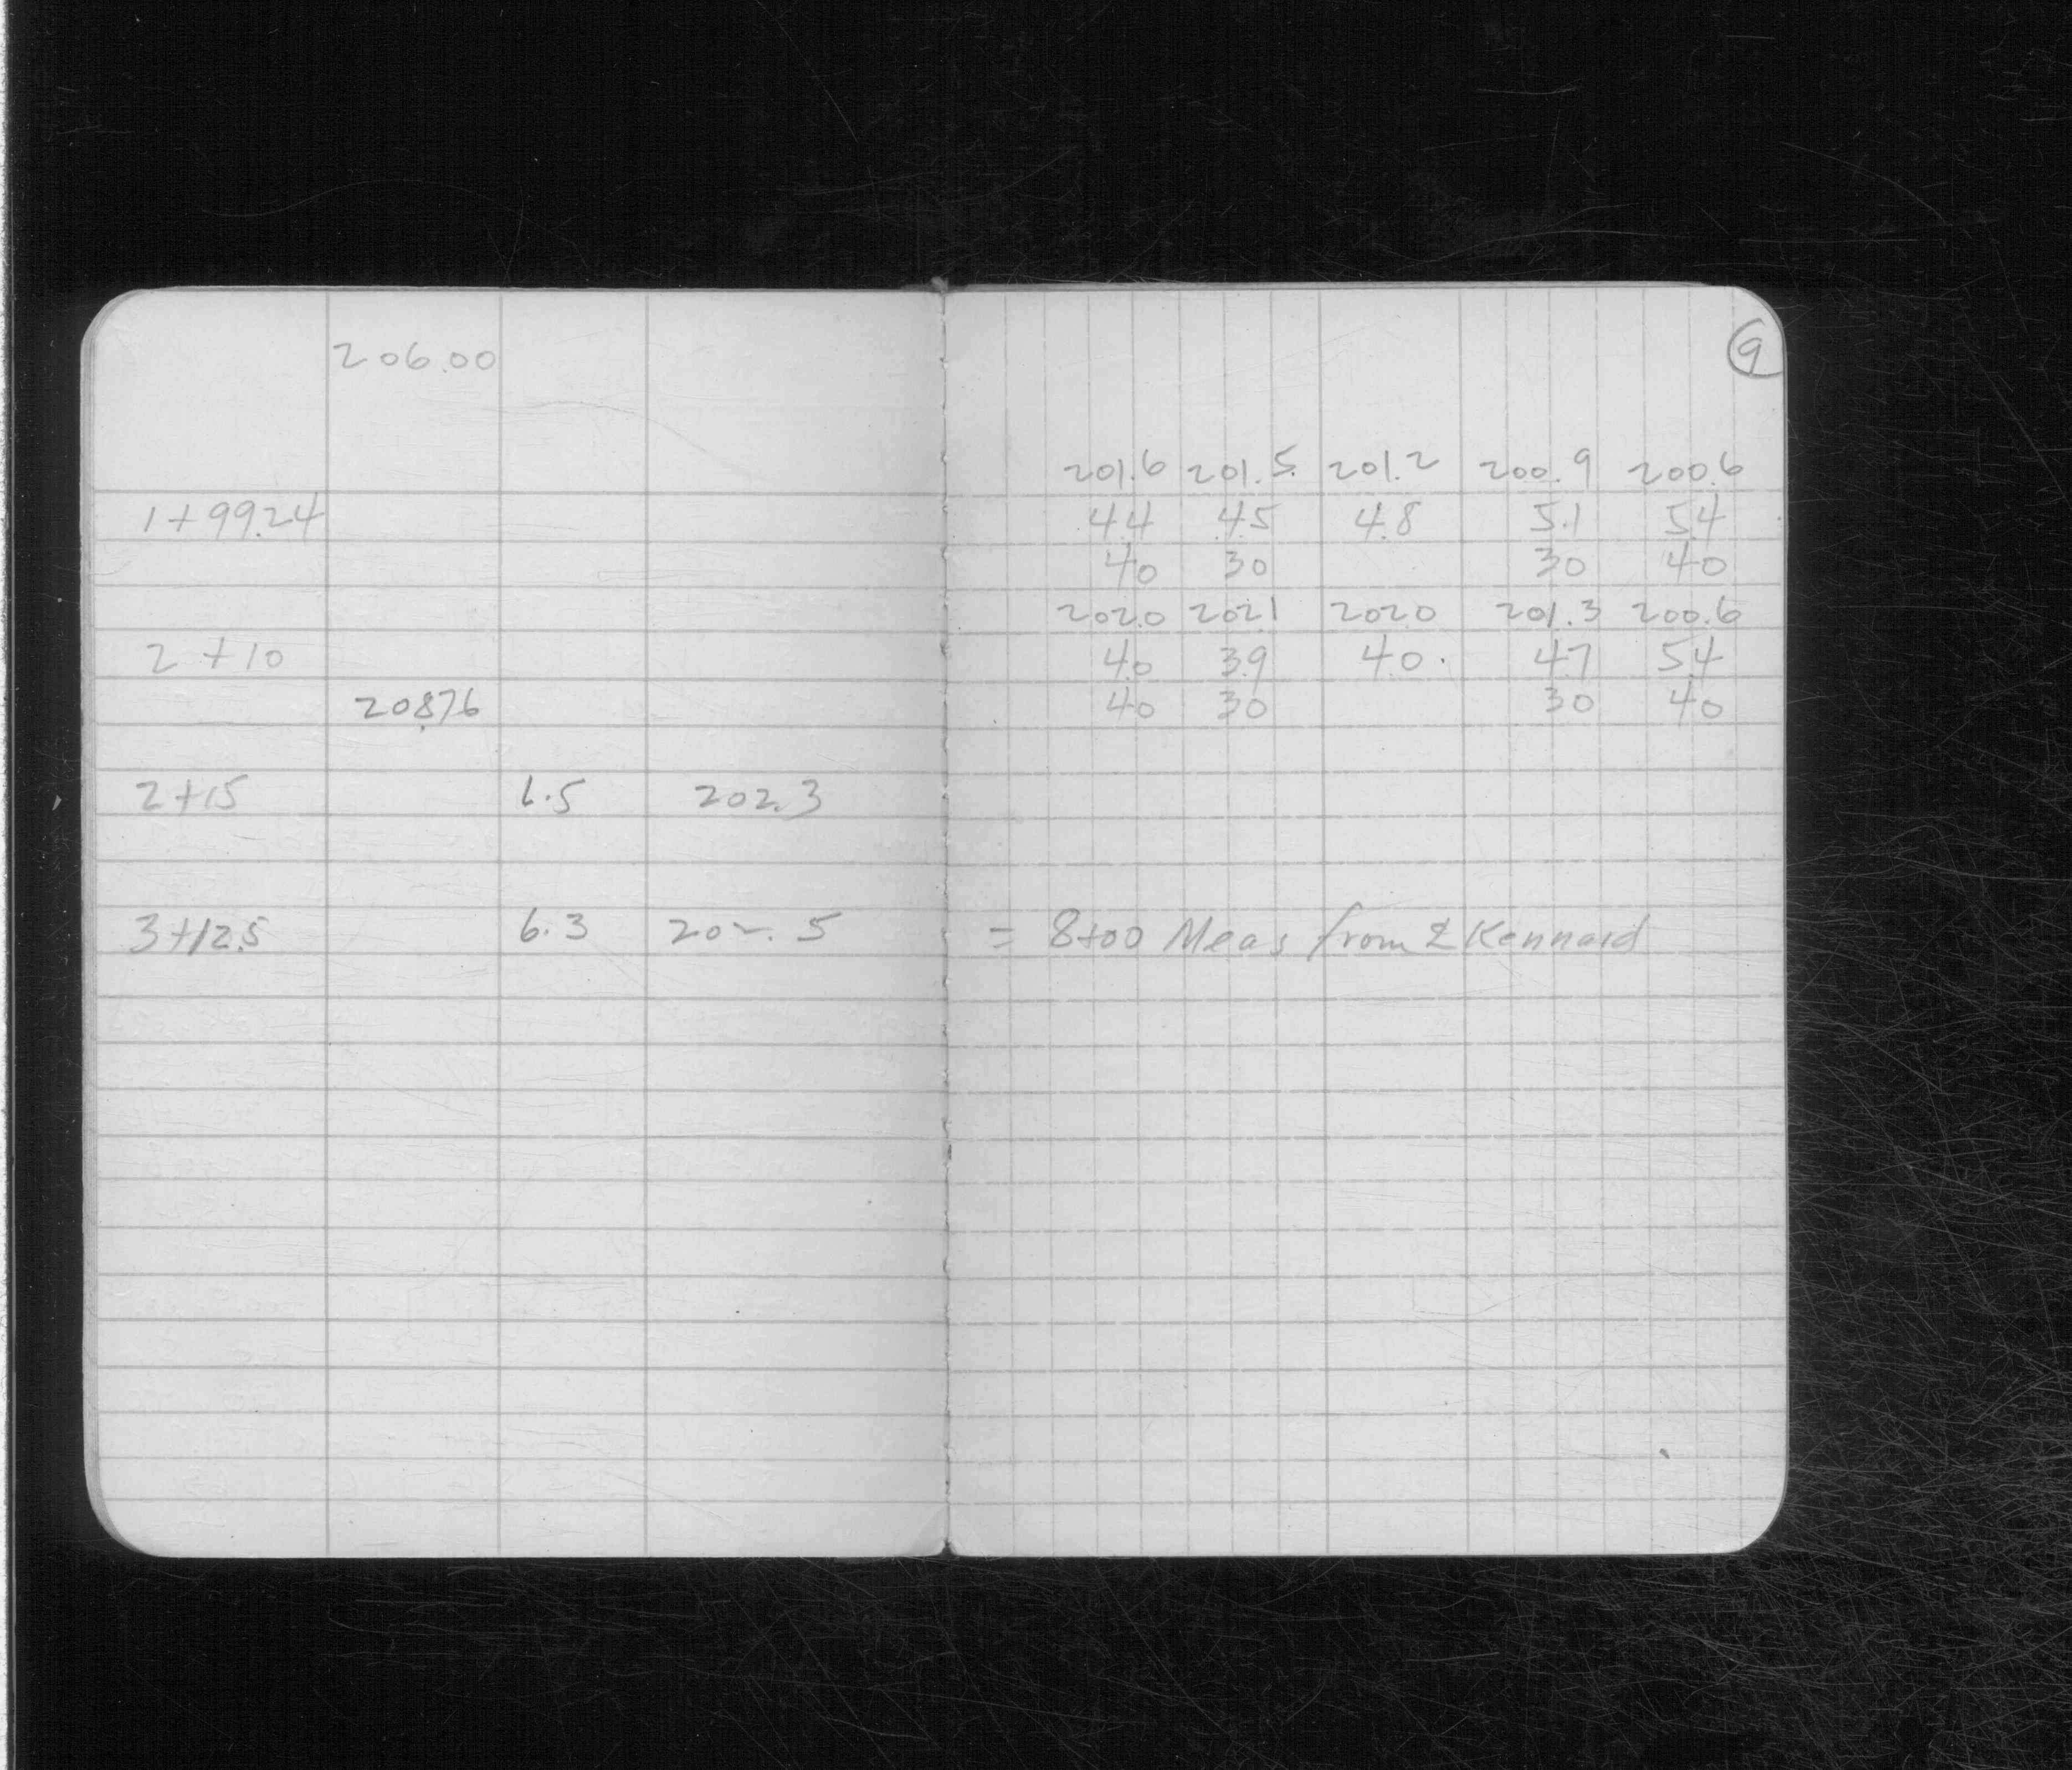 206.00
1+99.24
2+10
208.76
2+15 6.5 202.3
3+12.5 6.3 202.5
9
201.6 201.5 201.2 200.9 200.6
4.4 4.5 4.8 5.1 5.4
40 30 30 40
202.0 202.1 202.0 201.3 200.6
4.0 3.9 4.0 4.7 5.4
40 30 30 40
= 8+00 Meas from ℄ Kennard